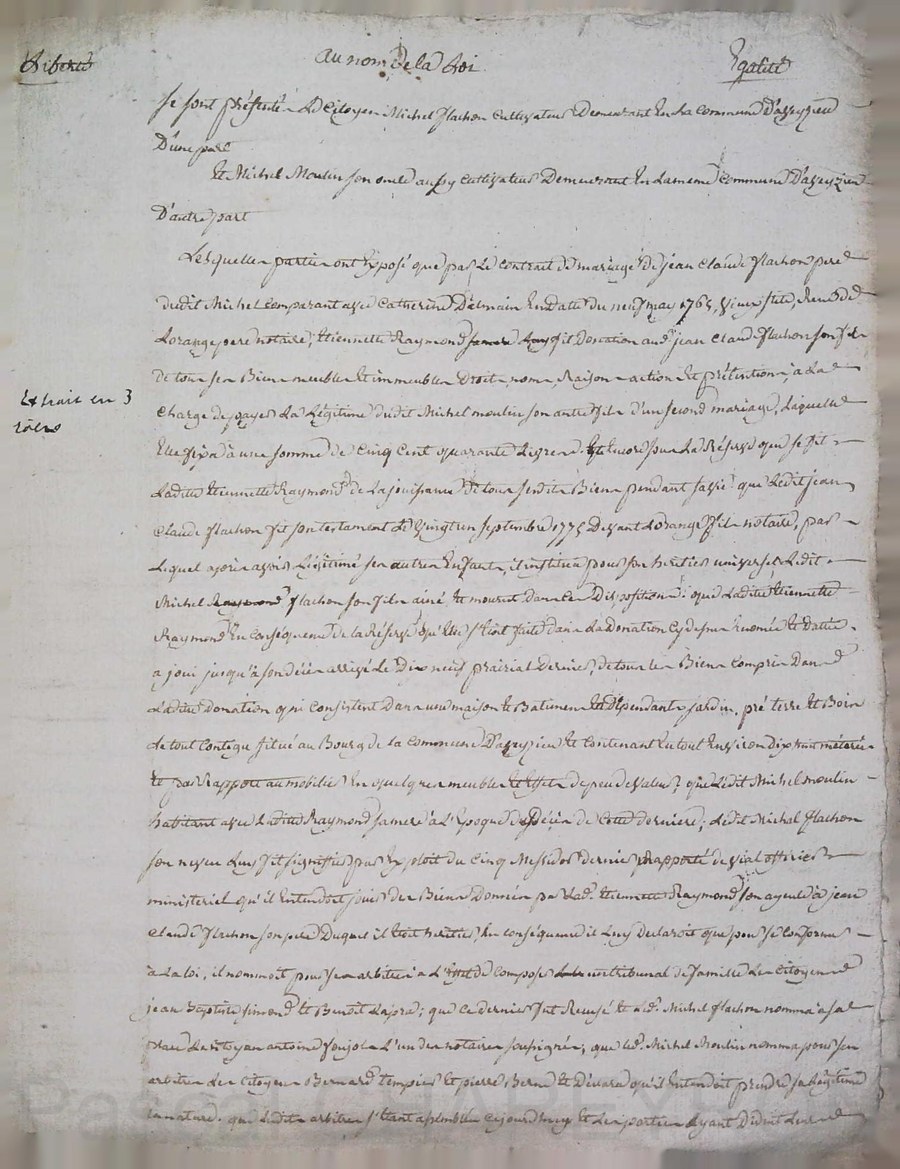 Liberté
au nom de la Loi
Egalité
Se sont présenté Le Citoyen Michel flachon Cultivateur Demeurant En La Commune D'aveyzieu
D'une part
Et Michel Moulin son oncle aussy Cultivateur Demeurant En Lamême Commune D'aveyzieu
D'autre part
Lesquelles parties ont Exposé que par Le Contrat de mariage de jean Claude flachon pere
dudit Michel Comparant avec Catherine Dalmain En datte du neuf may 1765, Reçu de
Lorange pere notaire, Etiennette Raymond sa mere fit Donation aud. jean Claude flachon son fils
de tous ses Biens meubles Et immeubles Droits noms Raisons actions Et prétentions, à La
Charge de payer La Légitime dudit Michel moulin son autre fils d'un second mariage, Laquelle
Elle fixa à une somme de Cinq Cent quarante Livres Et Encore sous La Réserve que se fit
Ladite Etiennette Raymond de La jouissance de tous sesdits Biens pendant sa vie; que Ledit jean
Claude flachon fit son testament Le Vingt septembre 1775 Devant Lorange fils notaire, par
Lequel après avoir Légitimé ses autres Enfants, il institua pour son heritier universel Ledit
Michel Raymond flachon son fils ainé Et mourut Dans Ces Dispositions: que Ladite Etiennette
Raymond En Conséquence de la Réserve qu'Elle s'étoit faite dans La Donation Cy dessus Enoncée Et Dattée
a joui jusqu'à son décès arrivé Le Dix neuf prairial Dernier, de tous Les Biens Compris Dans
Ladite Donation qui Consistent Dans une maison Et Batiments En Dépendants jardin, pré terre Et Bois
Le tout Contigu situé au Bourg de la Commune D'aveyzieu Et Contenant En tout Environ Dix huit
Et par Rapport au mobilier En quelques meubles Et Effets de peu de valeur; que Ledit Michel moulin
habitant avec Ladite Raymond sa mere à L'Epoque du Décès de Cette derniere; Ledit Michel flachon
son neveu Luy fit signifier par Exploit du Cinq Messidor dernier Rapporté de Vial officier
ministeriel qu'il Entendoit jouir des Biens Donnés par Lad. Etiennette Raymond son ayeule à jean
Claude flachon son pere Duquel il Etoit heritier En conséquence il Luy Declaroit que pour se Conformer
à La Loi, il nommoit pour ses arbitres à L'Effet de Composer un tribunal de famille Les Citoyens
jean Baptiste simond Et Benoit Lapra; que Ce dernier fut Recusé Et Led. Michel flachon nomma à sa
place Le Citoyen antoine Soujol L'un des notaires soussignés; que Led. Michel Moulin nomma pour ses
arbitres Les Citoyens Bernard tempier Et pierre Berne Et Déclara qu'il Entendoit prendre sa Légitime
En nature. que Lesdits arbitres s'étant assemblés Cejourdhuy Et Les parties ayant Déduit Leurs
Extrait en 3
rôles